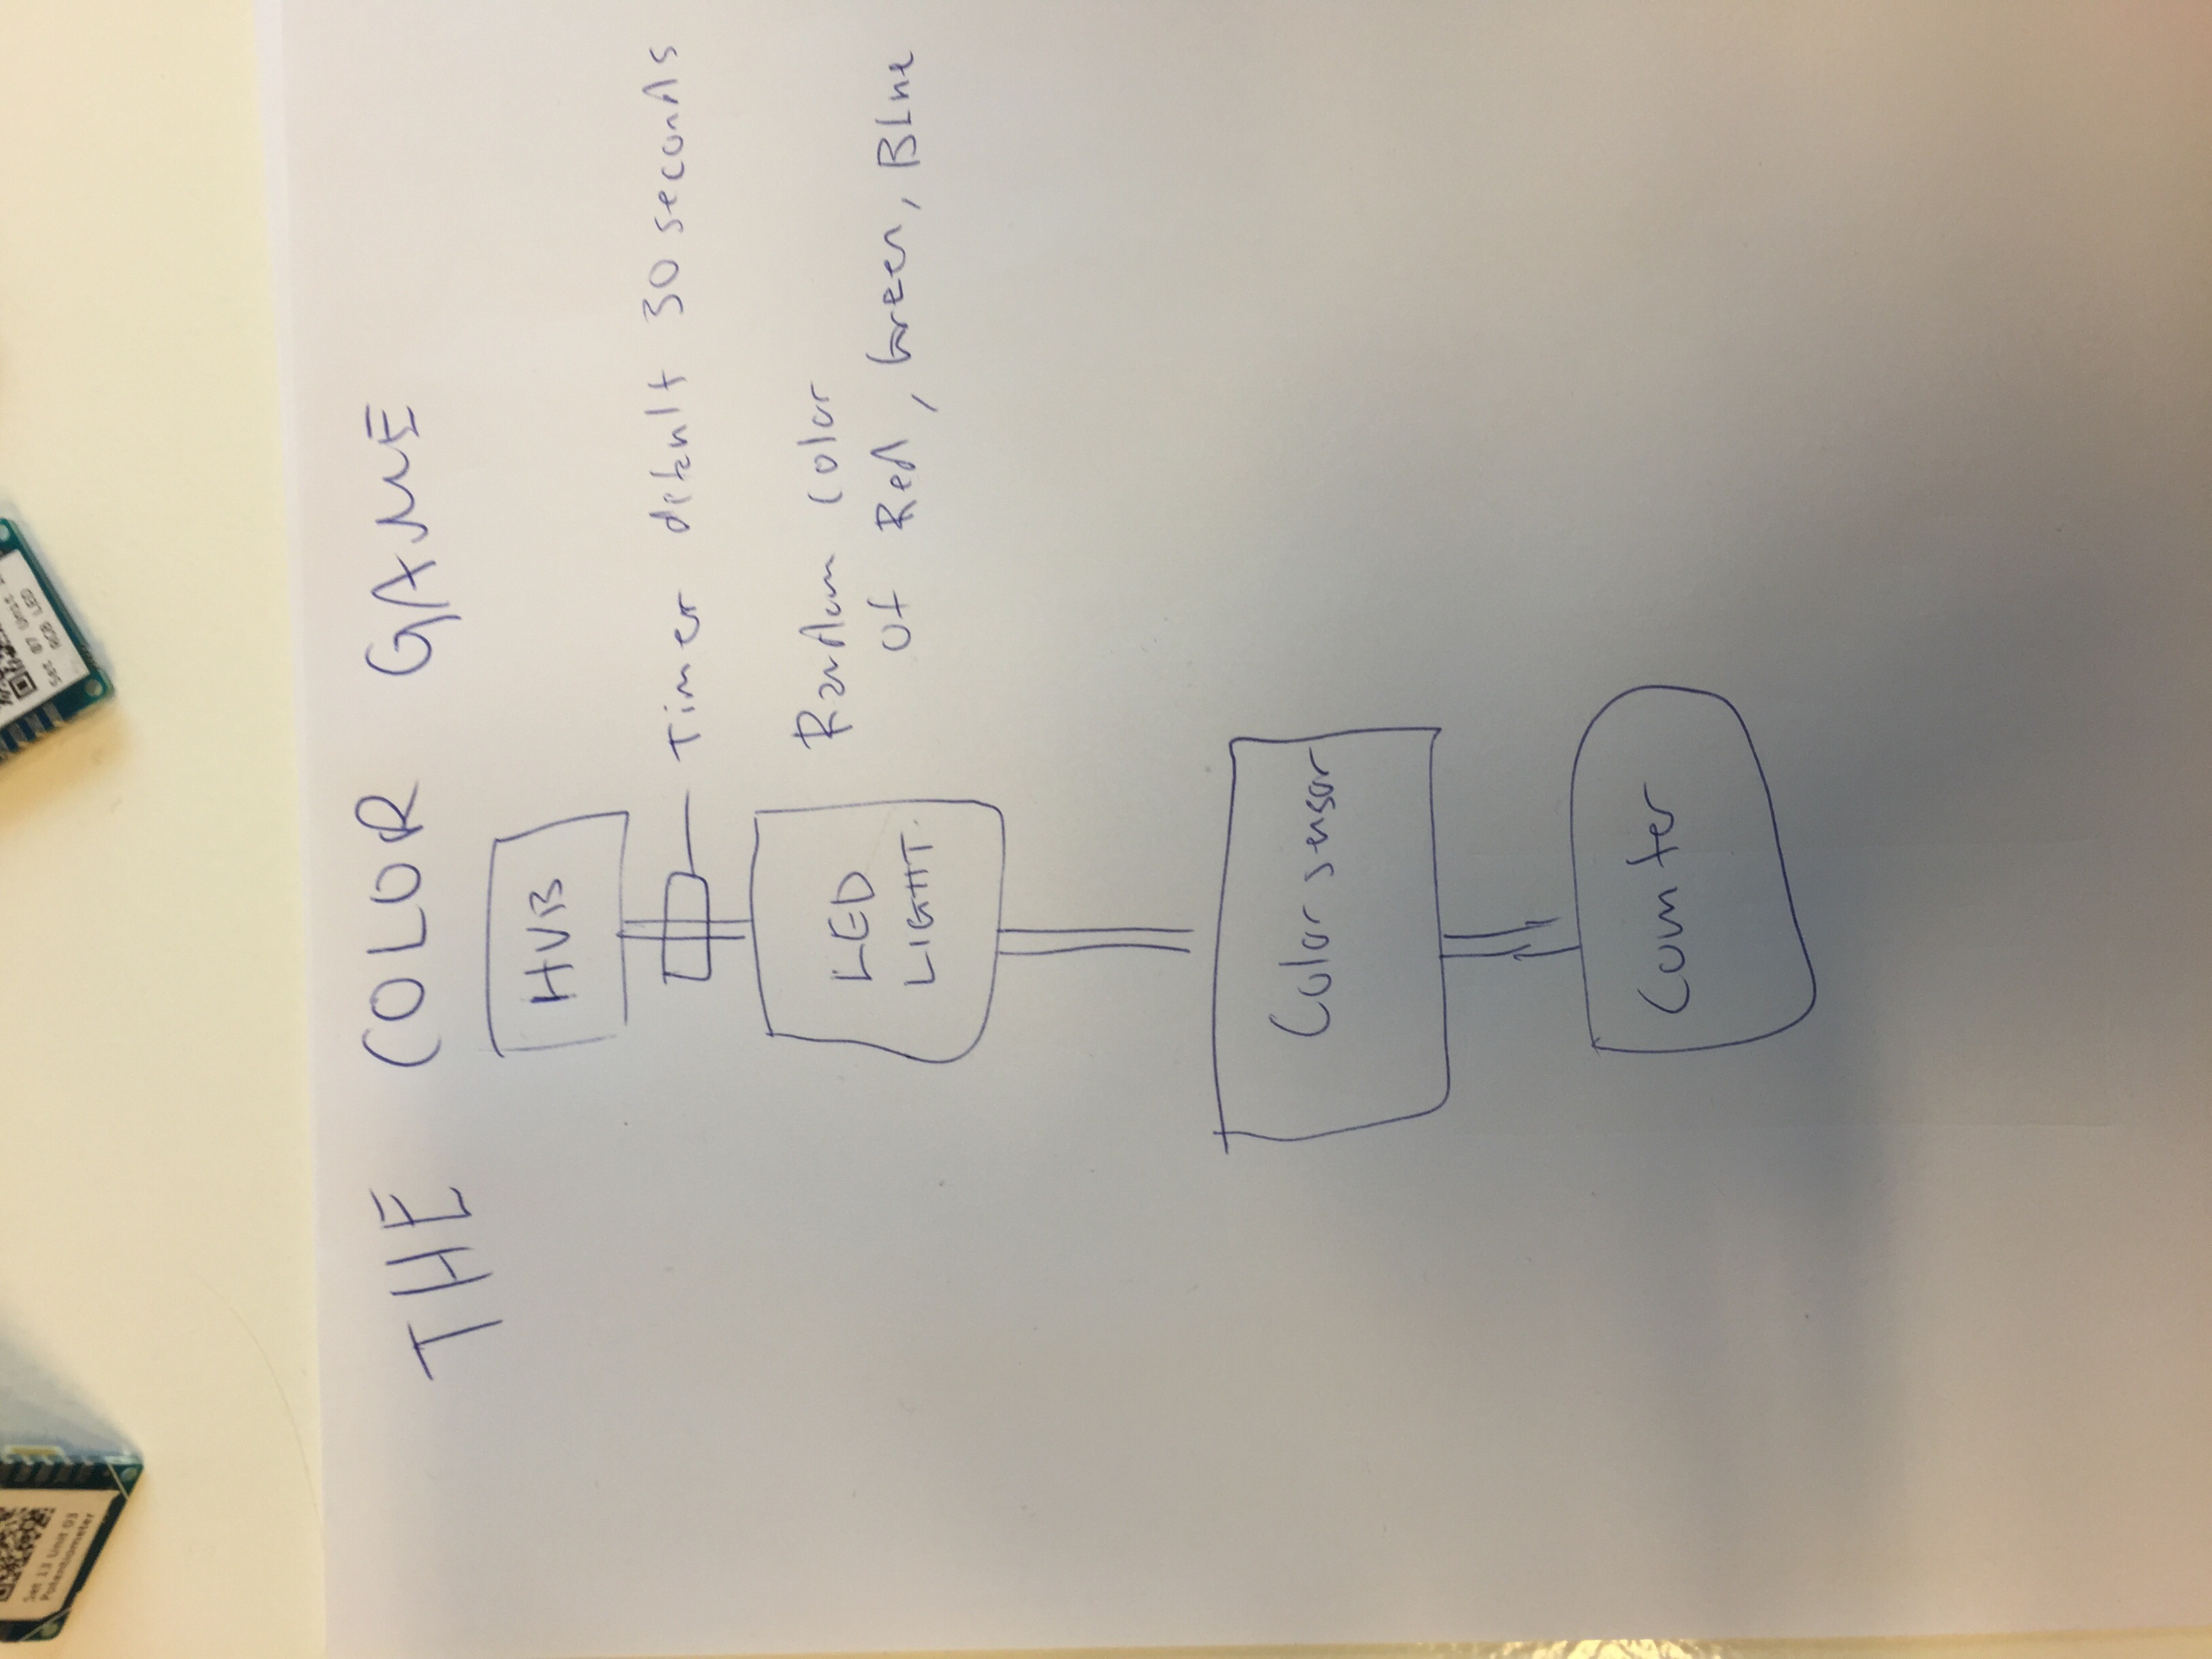 Set 13 Unit 03
Potentiometer
Set 07 Unit
RGB LED
THE COLOR GAME
HUB
Timer default 30 seconds
LED
LIGHT
Random color
of Red, Green, Blue
Color sensor
Counter